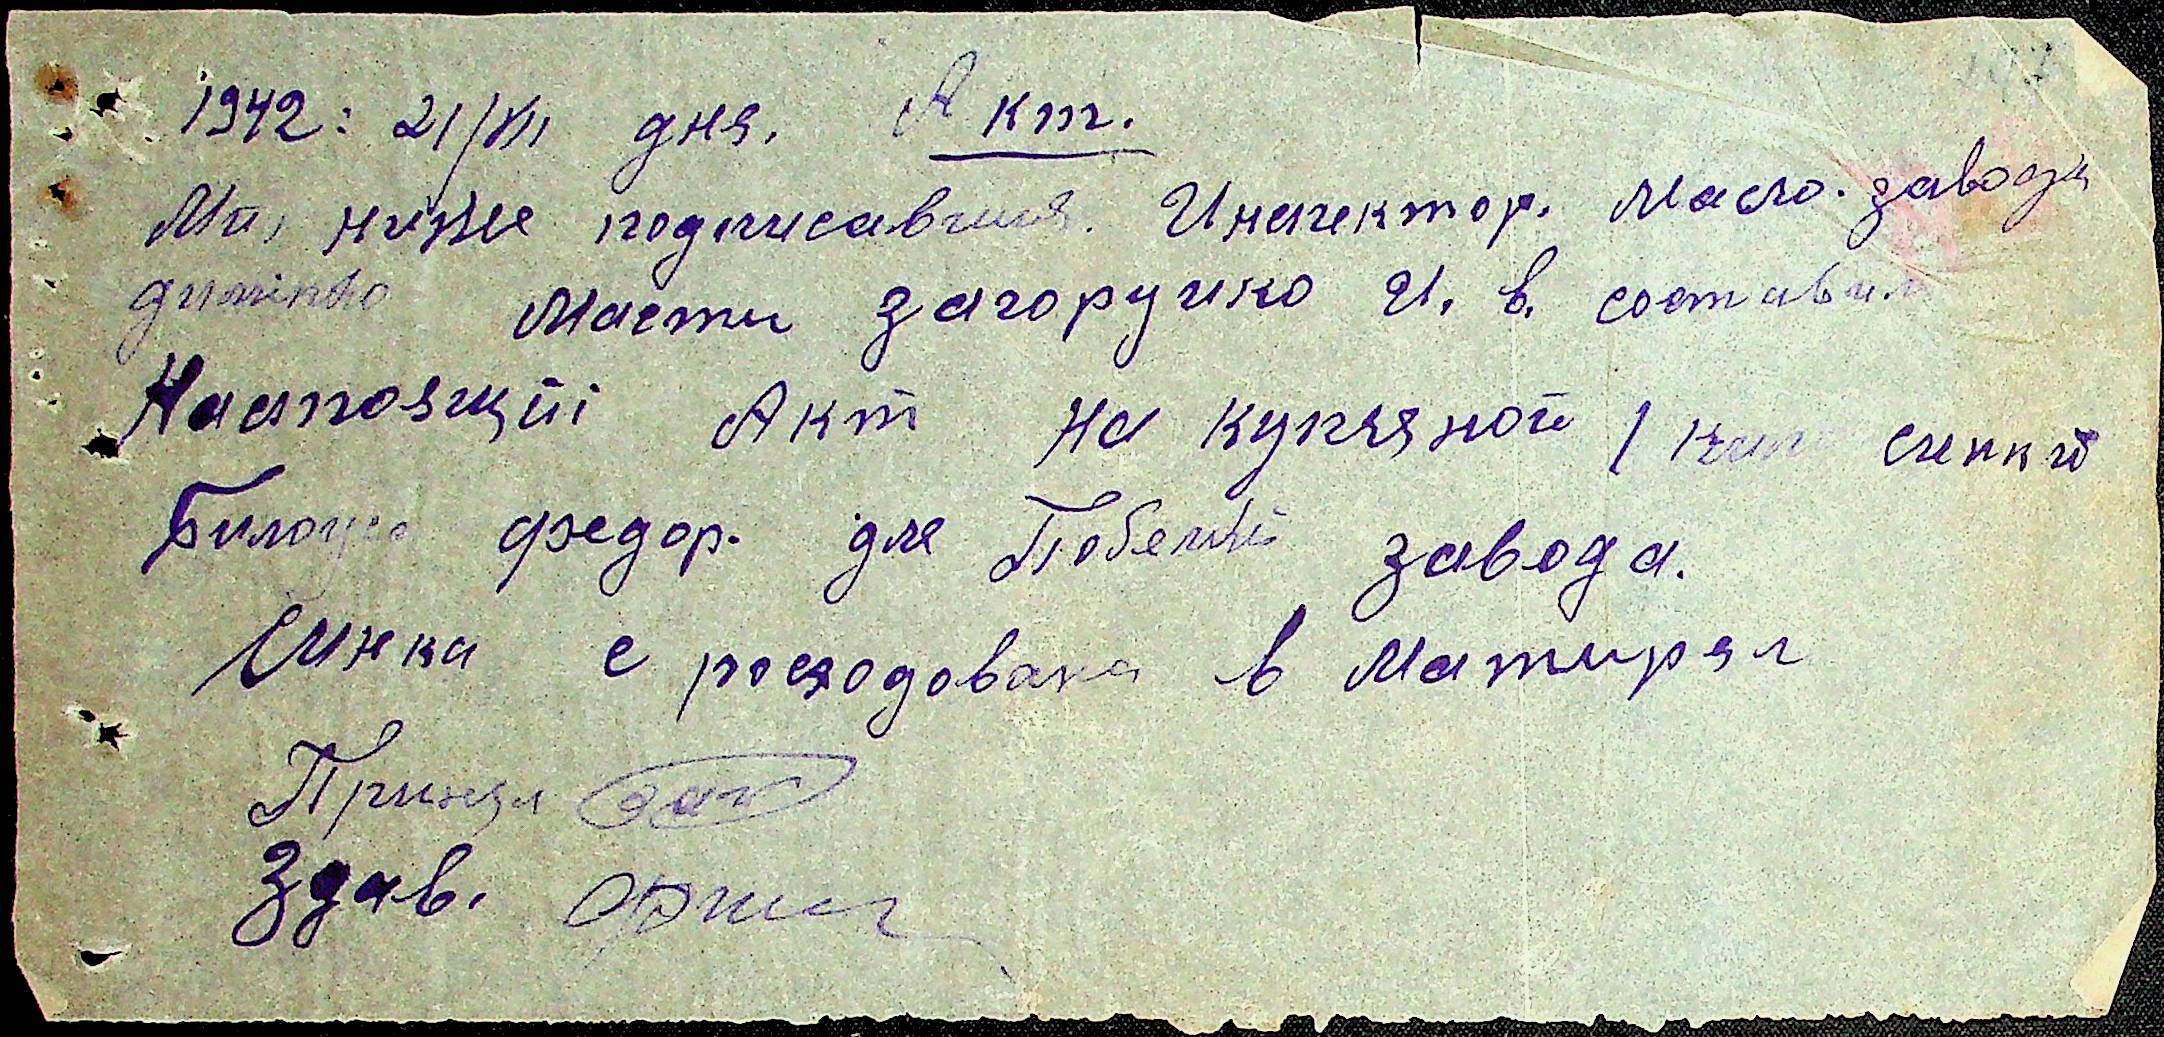 1942: 21/XII дня. Акт.
Мы, ниже подписавшися. Инспектор. Масло. завода
Масты загоручко И. В. составили
Настоящий Акт на купляной 1 кило синкы
федор. для Побелки завода.
Синка с росходована в Матирял
Принял Заг
Здав.